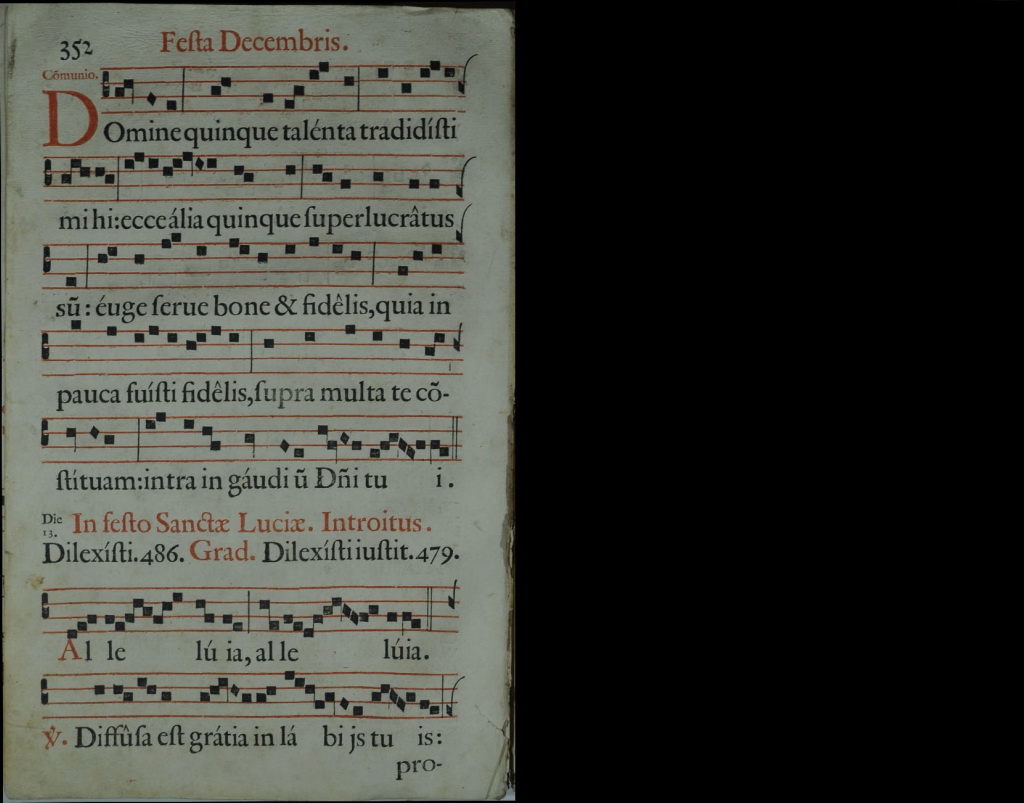 352 Feſta Decembris.
Cõmunio.
DOmine quinque talénta tradidíſti
mi hi: ecce ália quinque ſuperlucrâtus
sũ: éuge ſerue bone & fidêlis, quia in
pauca fuíſti fidêlis, ſupra multa te cõ-
ſtítuam: intra in gáudi ũ Dñi tu i.
Die 13. In feſto Sanctæ Luciæ. Introitus.
Dilexíſti. 486. Grad. Dilexíſti iuſtit. 479.
Al le lú ia, al le lúia.
℣. Diffûſa eſt grátia in lá bi js tu is:
pro-